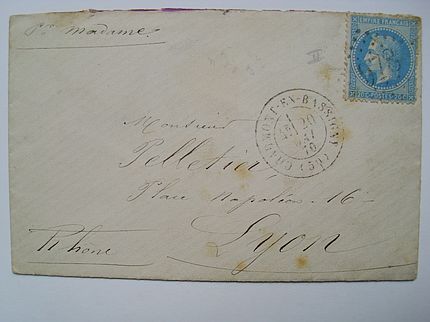 Madame
EMPIRE FRANÇAIS
20 C POSTES 20 C
CHAUMONT-EN-BASSIGNY (50)
20
MAI
70
Monsieur
Pelletier
Place Napoléon 16
Lyon
Rhône